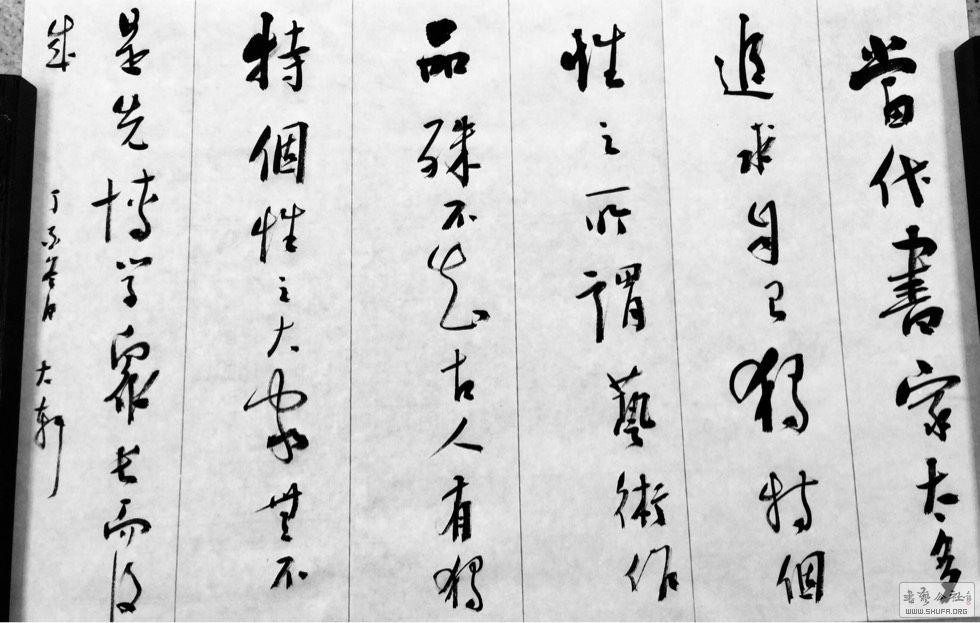 當代書家大多
追求自己獨特個
性之所謂藝術作
品殊不知古人有獨
特個性之大家無不
是先博學眾長而後
成
丁 大軒
書藝公社
WWW.SHUFA.ORG